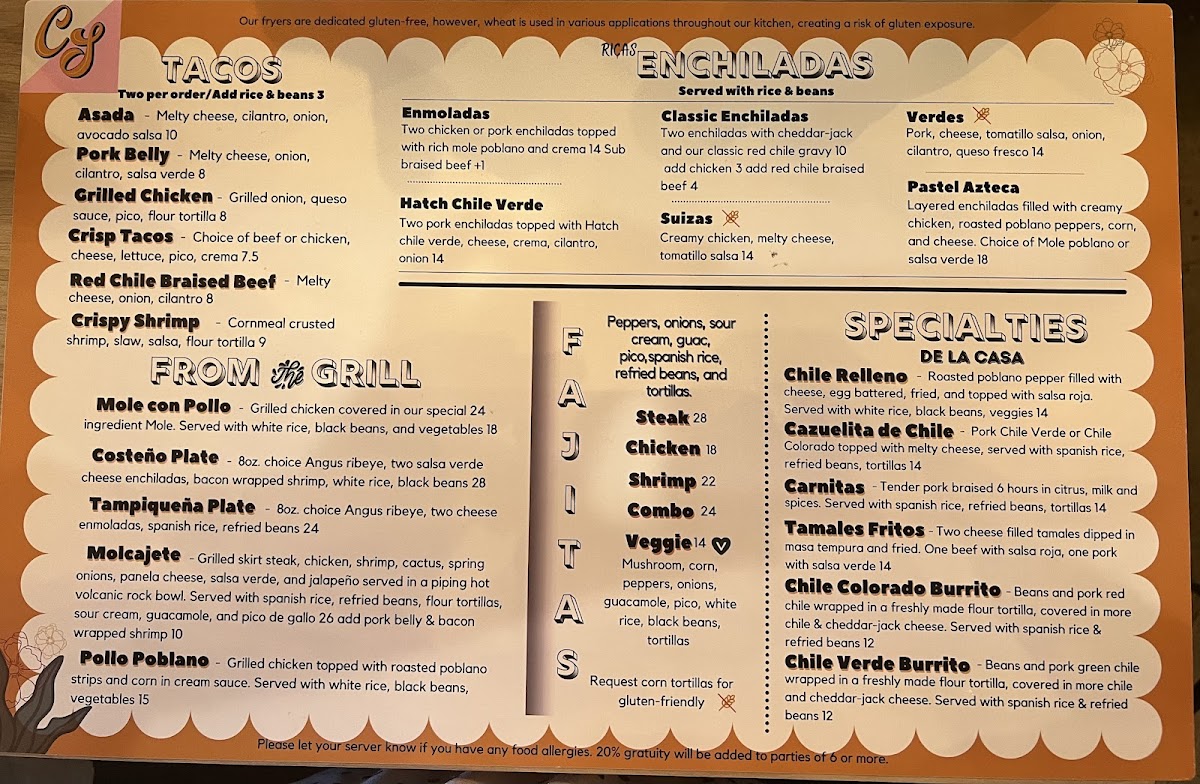 CY
Our fryers are dedicated gluten-free, however, wheat is used in various applications throughout our kitchen, creating a risk of gluten exposure.
TACOS
Two per order/Add rice & beans 3
Asada - Melty cheese, cilantro, onion,
avocado salsa 10
Pork Belly - Melty cheese, onion,
cilantro, salsa verde 8
Grilled Chicken - Grilled onion, queso
sauce, pico, flour tortilla 8
Crisp Tacos - Choice of beef or chicken,
cheese, lettuce, pico, crema 7.5
Red Chile Braised Beef - Melty
cheese, onion, cilantro 8
Crispy Shrimp - Cornmeal crusted
shrimp, slaw, salsa, flour tortilla 9
RICAS ENCHILADAS
Served with rice & beans
Enmoladas
Two chicken or pork enchiladas topped
with rich mole poblano and crema 14 Sub
braised beef +1
Hatch Chile Verde
Two pork enchiladas topped with Hatch
chile verde, cheese, crema, cilantro,
onion 14
Classic Enchiladas
Two enchiladas with cheddar-jack
and our classic red chile gravy 10
add chicken 3 add red chile braised
beef 4
Suizas
Creamy chicken, melty cheese,
tomatillo salsa 14
Verdes
Pork, cheese, tomatillo salsa, onion,
cilantro, queso fresco 14
Pastel Azteca
Layered enchiladas filled with creamy
chicken, roasted poblano peppers, corn,
and cheese. Choice of Mole poblano or
salsa verde 18
FROM the GRILL
Mole con Pollo - Grilled chicken covered in our special 24
ingredient Mole. Served with white rice, black beans, and vegetables 18
Costeño Plate - 8oz. choice Angus ribeye, two salsa verde
cheese enchiladas, bacon wrapped shrimp, white rice, black beans 28
Tampiqueña Plate - 8oz. choice Angus ribeye, two cheese
enmoladas, spanish rice, refried beans 24
Molcajete - Grilled skirt steak, chicken, shrimp, cactus, spring
onions, panela cheese, salsa verde, and jalapeño served in a piping hot
volcanic rock bowl. Served with spanish rice, refried beans, flour tortillas,
sour cream, guacamole, and pico de gallo 26 add pork belly & bacon
wrapped shrimp 10
Pollo Poblano - Grilled chicken topped with roasted poblano
strips and corn in cream sauce. Served with white rice, black beans,
vegetables 15
FAJITAS
Peppers, onions, sour
cream, guac,
pico,spanish rice,
refried beans, and
tortillas.
Steak 28
Chicken 18
Shrimp 22
Combo 24
Veggie 14
Mushroom, corn,
peppers, onions,
guacamole, pico, white
rice, black beans,
tortillas
Request corn tortillas for
gluten-friendly
SPECIALTIES
DE LA CASA
Chile Relleno - Roasted poblano pepper filled with
cheese, egg battered, fried, and topped with salsa roja.
Served with white rice, black beans, veggies 14
Cazuelita de Chile - Pork Chile Verde or Chile
Colorado topped with melty cheese, served with spanish rice,
refried beans, tortillas 14
Carnitas - Tender pork braised 6 hours in citrus, milk and
spices. Served with spanish rice, refried beans, tortillas 14
Tamales Fritos - Two cheese filled tamales dipped in
masa tempura and fried. One beef with salsa roja, one pork
with salsa verde 14
Chile Colorado Burrito - Beans and pork red
chile wrapped in a freshly made flour tortilla, covered in more
chile & cheddar-jack cheese. Served with spanish rice &
refried beans 12
Chile Verde Burrito - Beans and pork green chile
wrapped in a freshly made flour tortilla, covered in more chile
and cheddar-jack cheese. Served with spanish rice & refried
beans 12
Please let your server know if you have any food allergies. 20% gratuity will be added to parties of 6 or more.